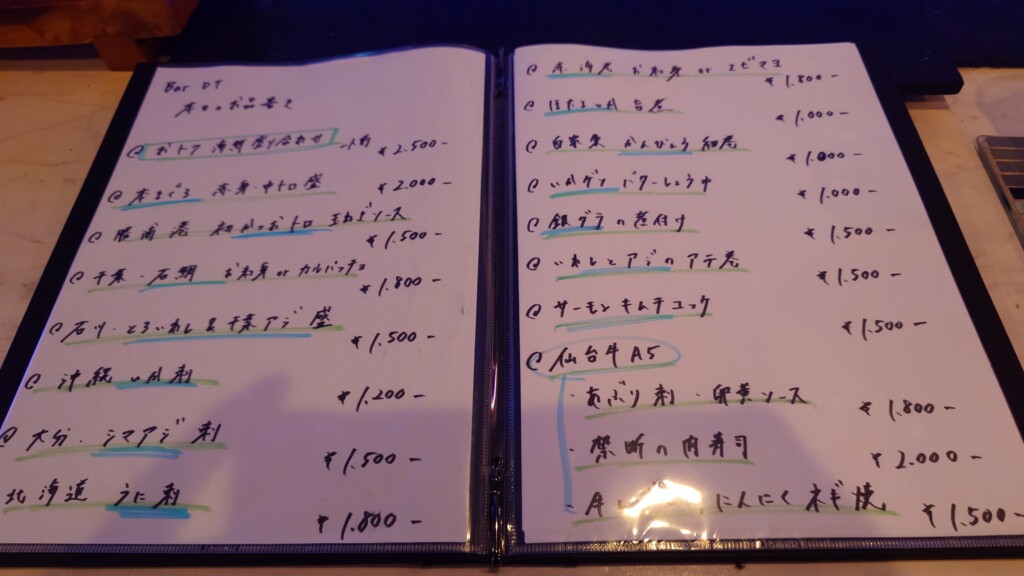 Bar DT
本日のお品書き
@ おトク 海鮮盛り合わせ 一人前 ¥2.500-
@ 本まぐろ 赤身・中トロ盛 ¥2.000-
@ 勝浦港 初かつおトロ 玉ねぎソース ¥1.500-
@ 千葉・石鯛 お刺身 or カルパッチョ ¥1.800-
@ 石川・とろいわし & 千葉アジ 盛 ¥1.500-
@ 沖縄 いか刺 ¥1.200-
@ 大分・シマアジ 刺 ¥1.500-
北海道 うに刺 ¥1.800-
@ 赤海老 お刺身 or エビマヨ ¥1.800-
@ ほたるいか ¥1.000-
@ 自家製 かんぴょう 細巻 ¥1.000-
@ いかゲソ バターしょうゆ ¥1.000-
@ 銀ダラの煮付け ¥1.500-
@ いわしとアジのアテ巻 ¥1.500-
@ サーモンキムチユッケ ¥1.500-
@ 仙台牛A5
・あぶり刺・卵黄ソース ¥1.800-
・禁断の肉寿司 ¥2.000-
・にんにくネギ焼 ¥1.500-